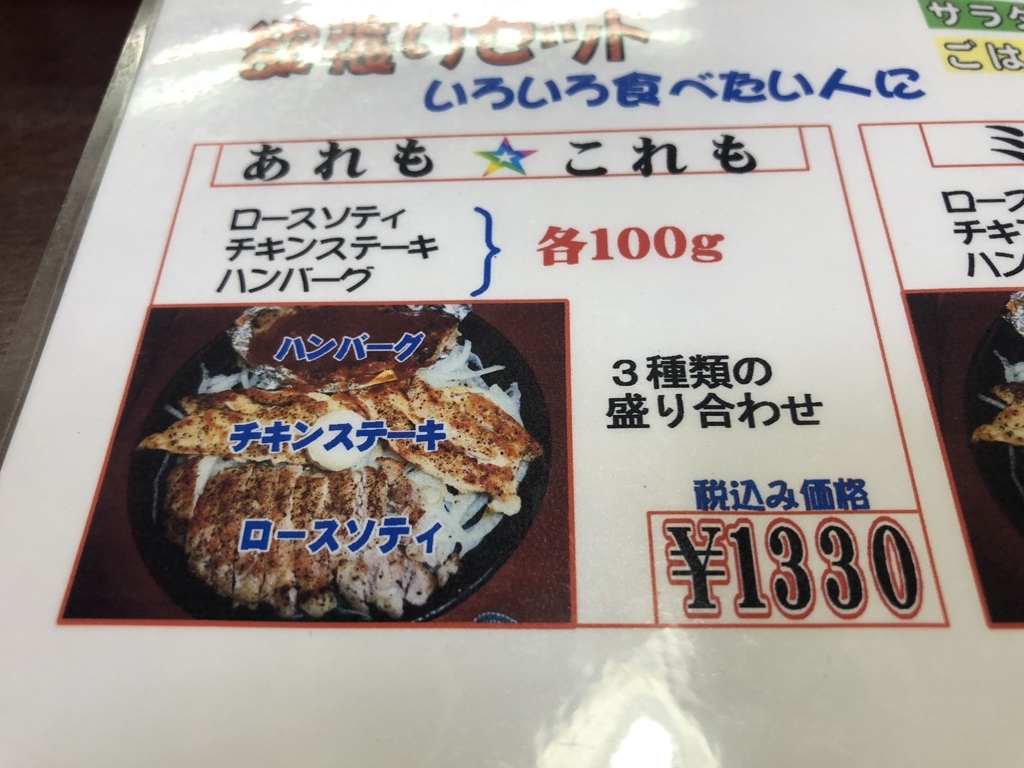 欲張りセット
いろいろ食べたい人に
サラダ
ごは
あれも★これも
ロースソティ
チキンステーキ
ハンバーグ
各100g
ハンバーグ
チキンステーキ
ロースソティ
3種類の
盛り合わせ
税込み価格
¥1330
ミ
ロース
チキ
ハン